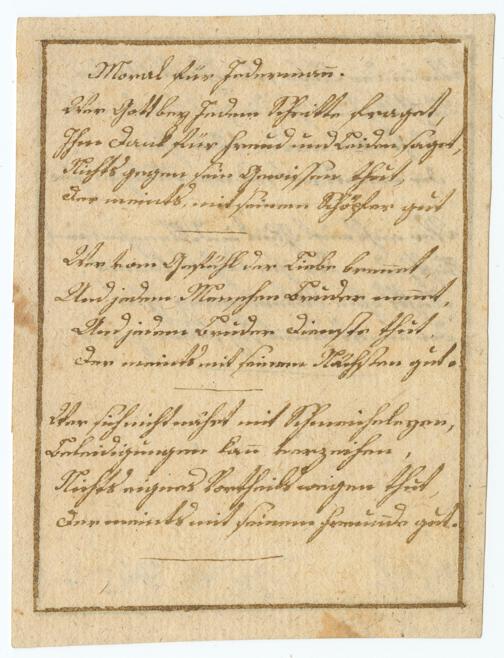 Moral für Jedermañ.
Wer Gott bey Jedem Schritte fraget,
Ihm Dank für Freud und Leiden saget,
Nichts gegen sein Gewissen thut,
Der meints, mit seinem Schöpfer gut
Wer vom Gefühl der Liebe breñet,
Und jedem Menschen Bruder neñet,
Und jedem Bruder Dienste thut
Der meints mit seinem Nächsten gut.
Wer sich nicht nährt mit Schmeicheleyen,
Beleidigungen kañ verzeihen,
Nichts eignes Vortheils wegen thut,
Der meints mit seinem Freunde gut.